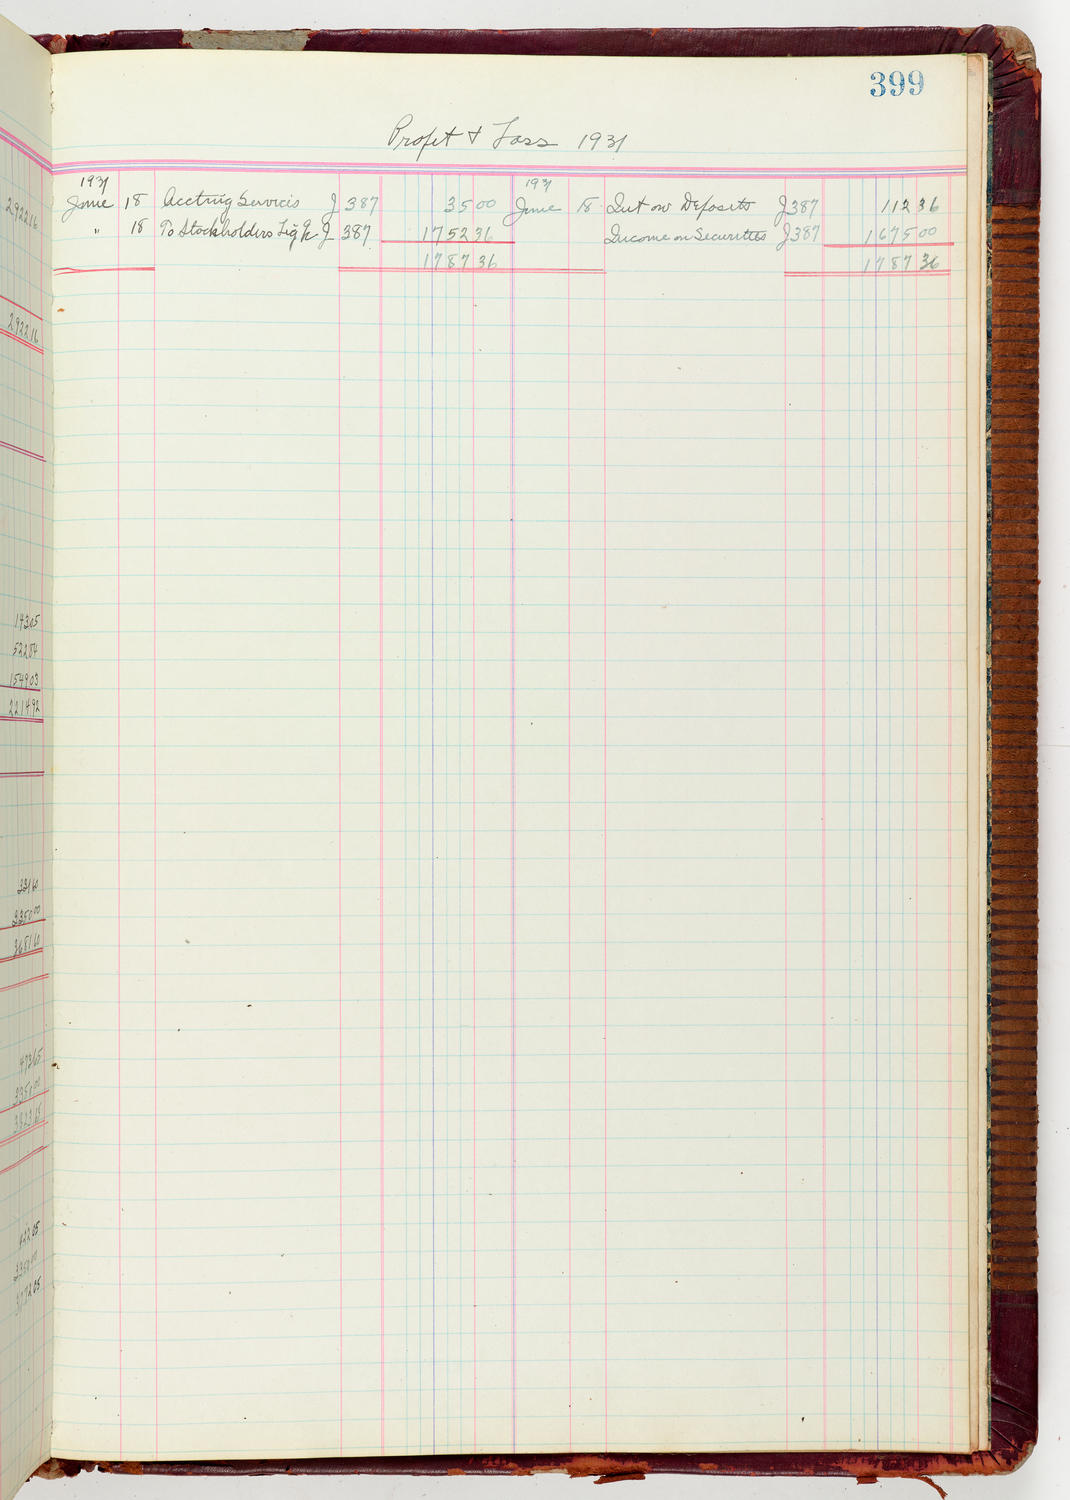 399
Profit & Loss 1931
1931 1931
June 18 Acctng Services J 387 35 00 June 18 Int on Deposits J 387 112 36
" 18 To Stockholders Liq J 387 1752 36 Income on Securities J 387 1675 00
1787 36 1787 36
2922 16
2922 16
143 05
522 84
1549 03
2214 92
331 60
3350 00
3681 60
473 65
3350 00
3823 65
422 05
3350 00
3772 05